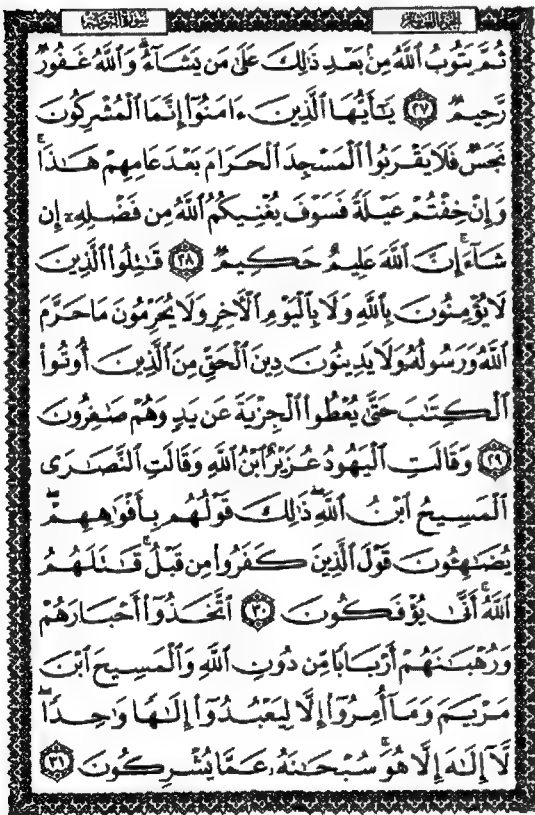 الجزء العاشر سورة التوبة
ثُمَّ يَتُوبُ ٱللَّهُ مِنۢ بَعۡدِ ذَٰلِكَ عَلَىٰ مَن يَشَآءُۗ وَٱللَّهُ غَفُورٌ
رَّحِيمٌ ٢٧ يَٰٓأَيُّهَا ٱلَّذِينَ ءَامَنُوٓاْ إِنَّمَا ٱلۡمُشۡرِكُونَ
نَجَسٌ فَلَا يَقۡرَبُواْ ٱلۡمَسۡجِدَ ٱلۡحَرَامَ بَعۡدَ عَامِهِمۡ هَٰذَاۚ
وَإِنۡ خِفۡتُمۡ عَيۡلَةً فَسَوۡفَ يُغۡنِيكُمُ ٱللَّهُ مِن فَضۡلِهِۦٓ إِن
شَآءَۚ إِنَّ ٱللَّهَ عَلِيمٌ حَكِيمٌ ٢٨ قَٰتِلُواْ ٱلَّذِينَ
لَا يُؤۡمِنُونَ بِٱللَّهِ وَلَا بِٱلۡيَوۡمِ ٱلۡأٓخِرِ وَلَا يُحَرِّمُونَ مَا حَرَّمَ
ٱللَّهُ وَرَسُولُهُۥ وَلَا يَدِينُونَ دِينَ ٱلۡحَقِّ مِنَ ٱلَّذِينَ أُوتُواْ
ٱلۡكِتَٰبَ حَتَّىٰ يُعۡطُواْ ٱلۡجِزۡيَةَ عَن يَدٍ وَهُمۡ صَٰغِرُونَ
٢٩ وَقَالَتِ ٱلۡيَهُودُ عُزَيۡرٌ ٱبۡنُ ٱللَّهِ وَقَالَتِ ٱلنَّصَٰرَى
ٱلۡمَسِيحُ ٱبۡنُ ٱللَّهِۖ ذَٰلِكَ قَوۡلُهُم بِأَفۡوَٰهِهِمۡۖ
يُضَٰهِـُٔونَ قَوۡلَ ٱلَّذِينَ كَفَرُواْ مِن قَبۡلُۚ قَٰتَلَهُمُ
ٱللَّهُۖ أَنَّىٰ يُؤۡفَكُونَ ٣٠ ٱتَّخَذُوٓاْ أَحۡبَارَهُمۡ
وَرُهۡبَٰنَهُمۡ أَرۡبَابًا مِّن دُونِ ٱللَّهِ وَٱلۡمَسِيحَ ٱبۡنَ
مَرۡيَمَ وَمَآ أُمِرُوٓاْ إِلَّا لِيَعۡبُدُوٓاْ إِلَٰهًا وَٰحِدًاۖ
لَّآ إِلَٰهَ إِلَّا هُوَۚ سُبۡحَٰنَهُۥ عَمَّا يُشۡرِكُونَ ٣١